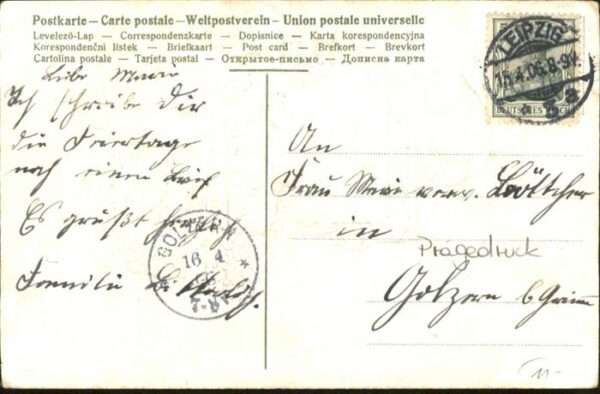 Postkarte – Carte postale – Weltpostverein – Union postale universelle
Levelező-Lap – Correspondenzkarte – Dopisnice – Karta korespondencyjna
Korespondenční lístek – Briefkaart – Post card – Brefkort – Brevkort
Cartolina postale – Tarjeta postal – Открытое-письмо – Дописна карта
Liebe
Ich schreibe Dir
die Feiertage
noch einen Brief
Es grüßt herzlich
Familie
LEIPZIG
15.4.06.8-9V.
DEUTSCHES REICH
An
Frau verw. Böttcher
in
Prägedruck
Golzern b/Grimm
GOLZERN
16 4
7-8V